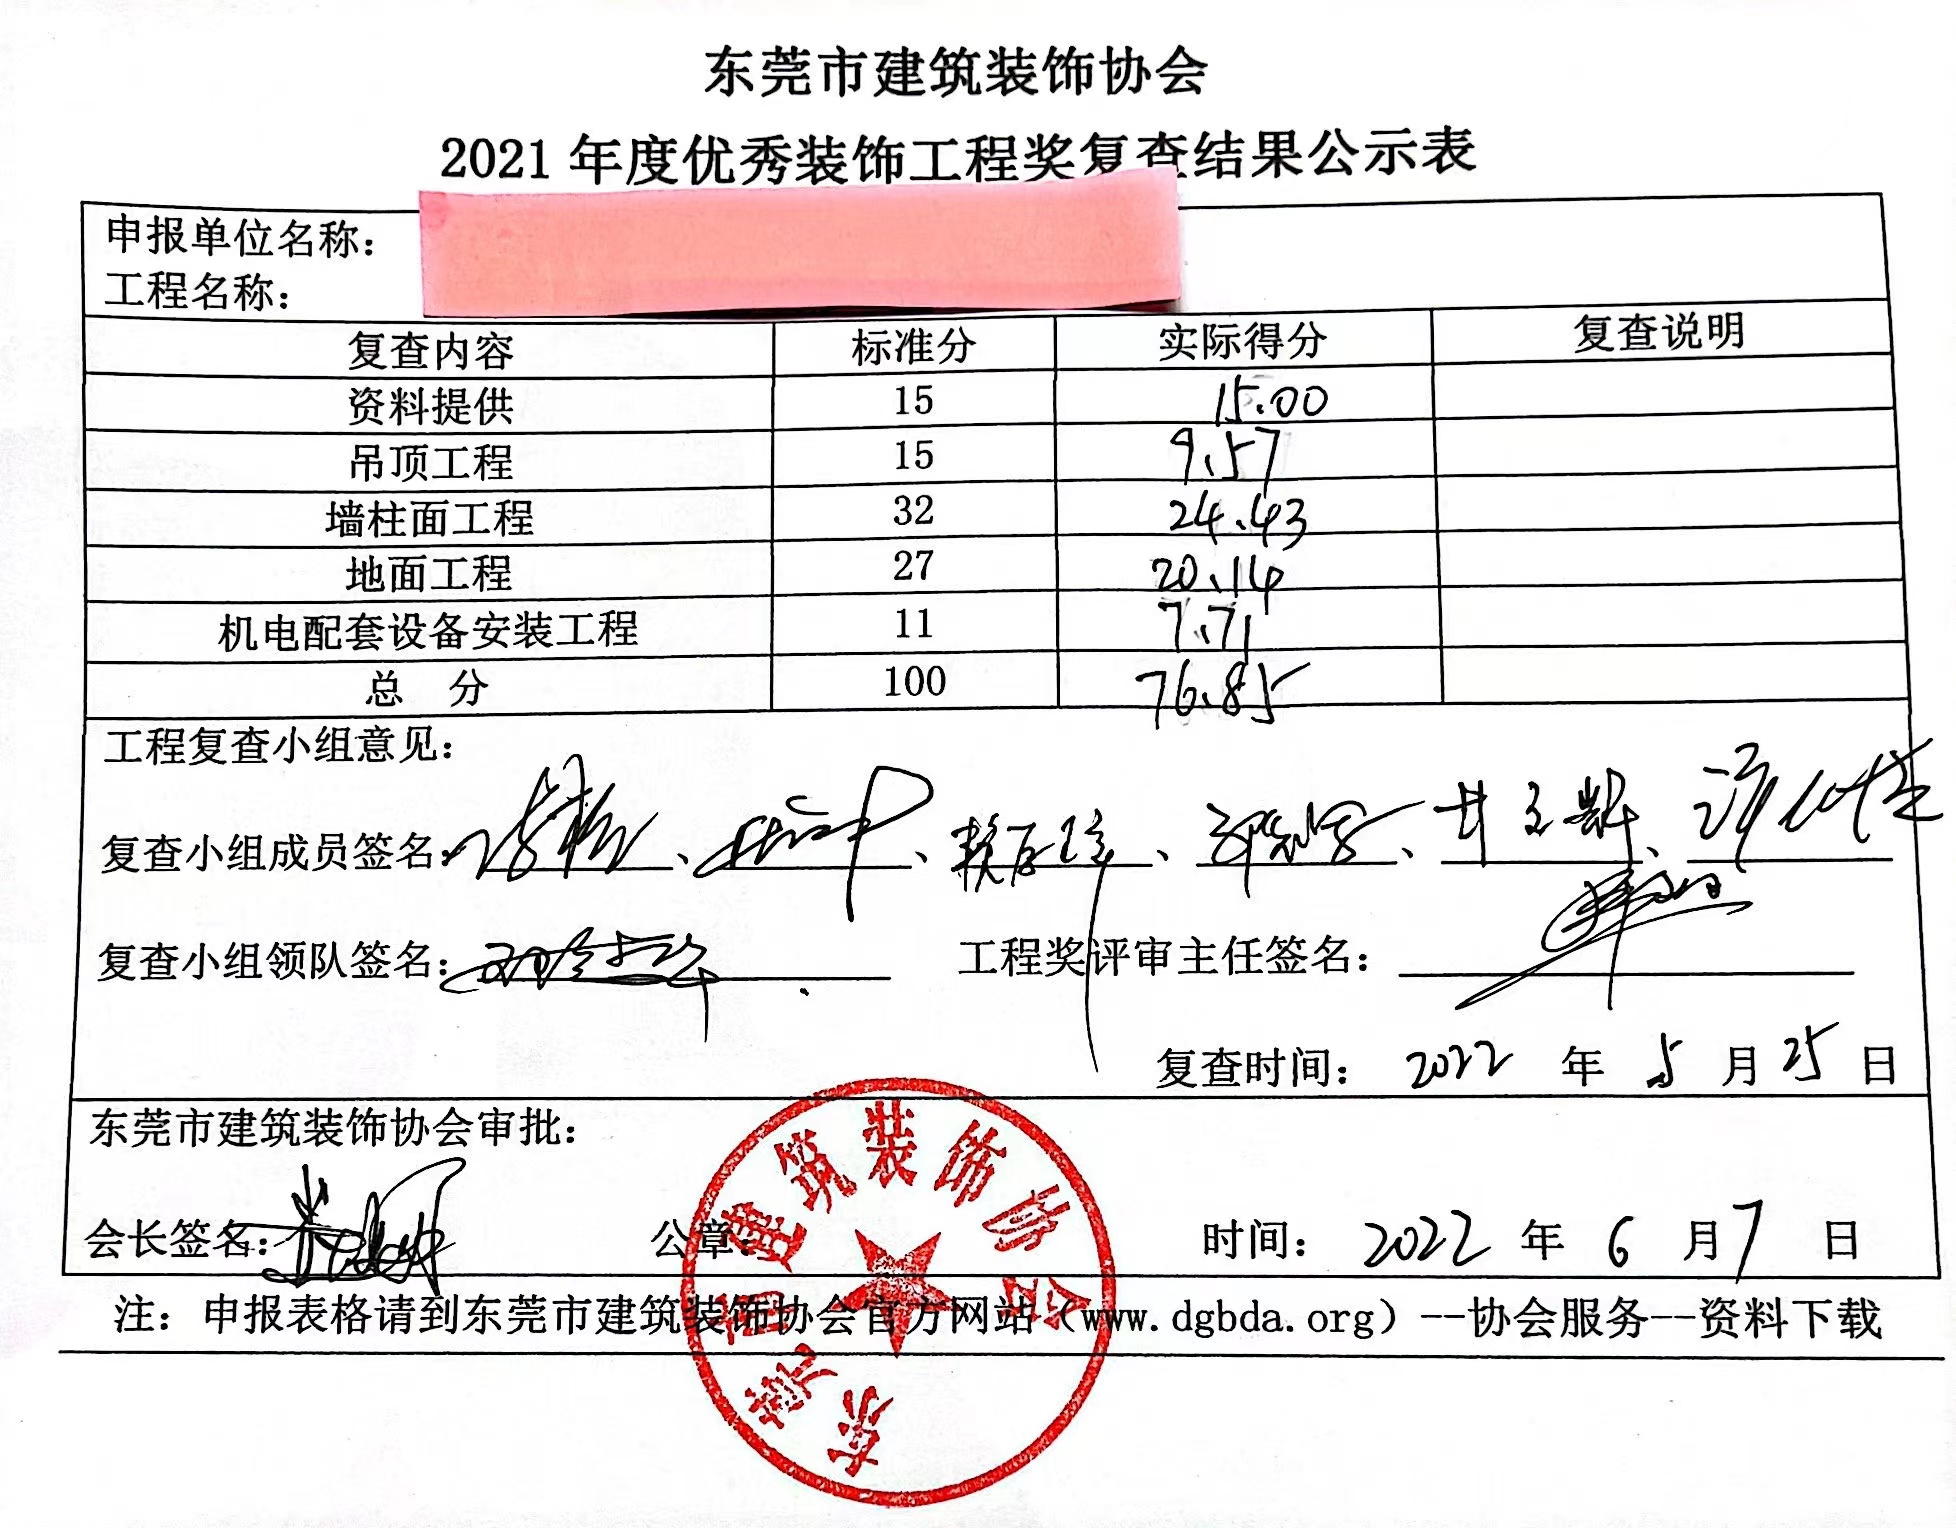 东莞市建筑装饰协会
2021 年度优秀装饰工程奖复查结果公示表
申报单位名称：
工程名称：
复查内容 标准分 实际得分 复查说明
资料提供 15 15.00
吊顶工程 15 9.57
墙柱面工程 32 24.43
地面工程 27 20.14
机电配套设备安装工程 11 7.71
总 分 100 76.85
工程复查小组意见：
复查小组成员签名：、、、、、
复查小组领队签名： 工程奖评审主任签名：
复查时间： 2022 年 5 月 25 日
东莞市建筑装饰协会审批：
会长签名： 公章： 时间： 2022 年 6 月 7 日
东莞市建筑装饰协会
注：申报表格请到东莞市建筑装饰协会官方网站（www.dgbda.org）--协会服务--资料下载